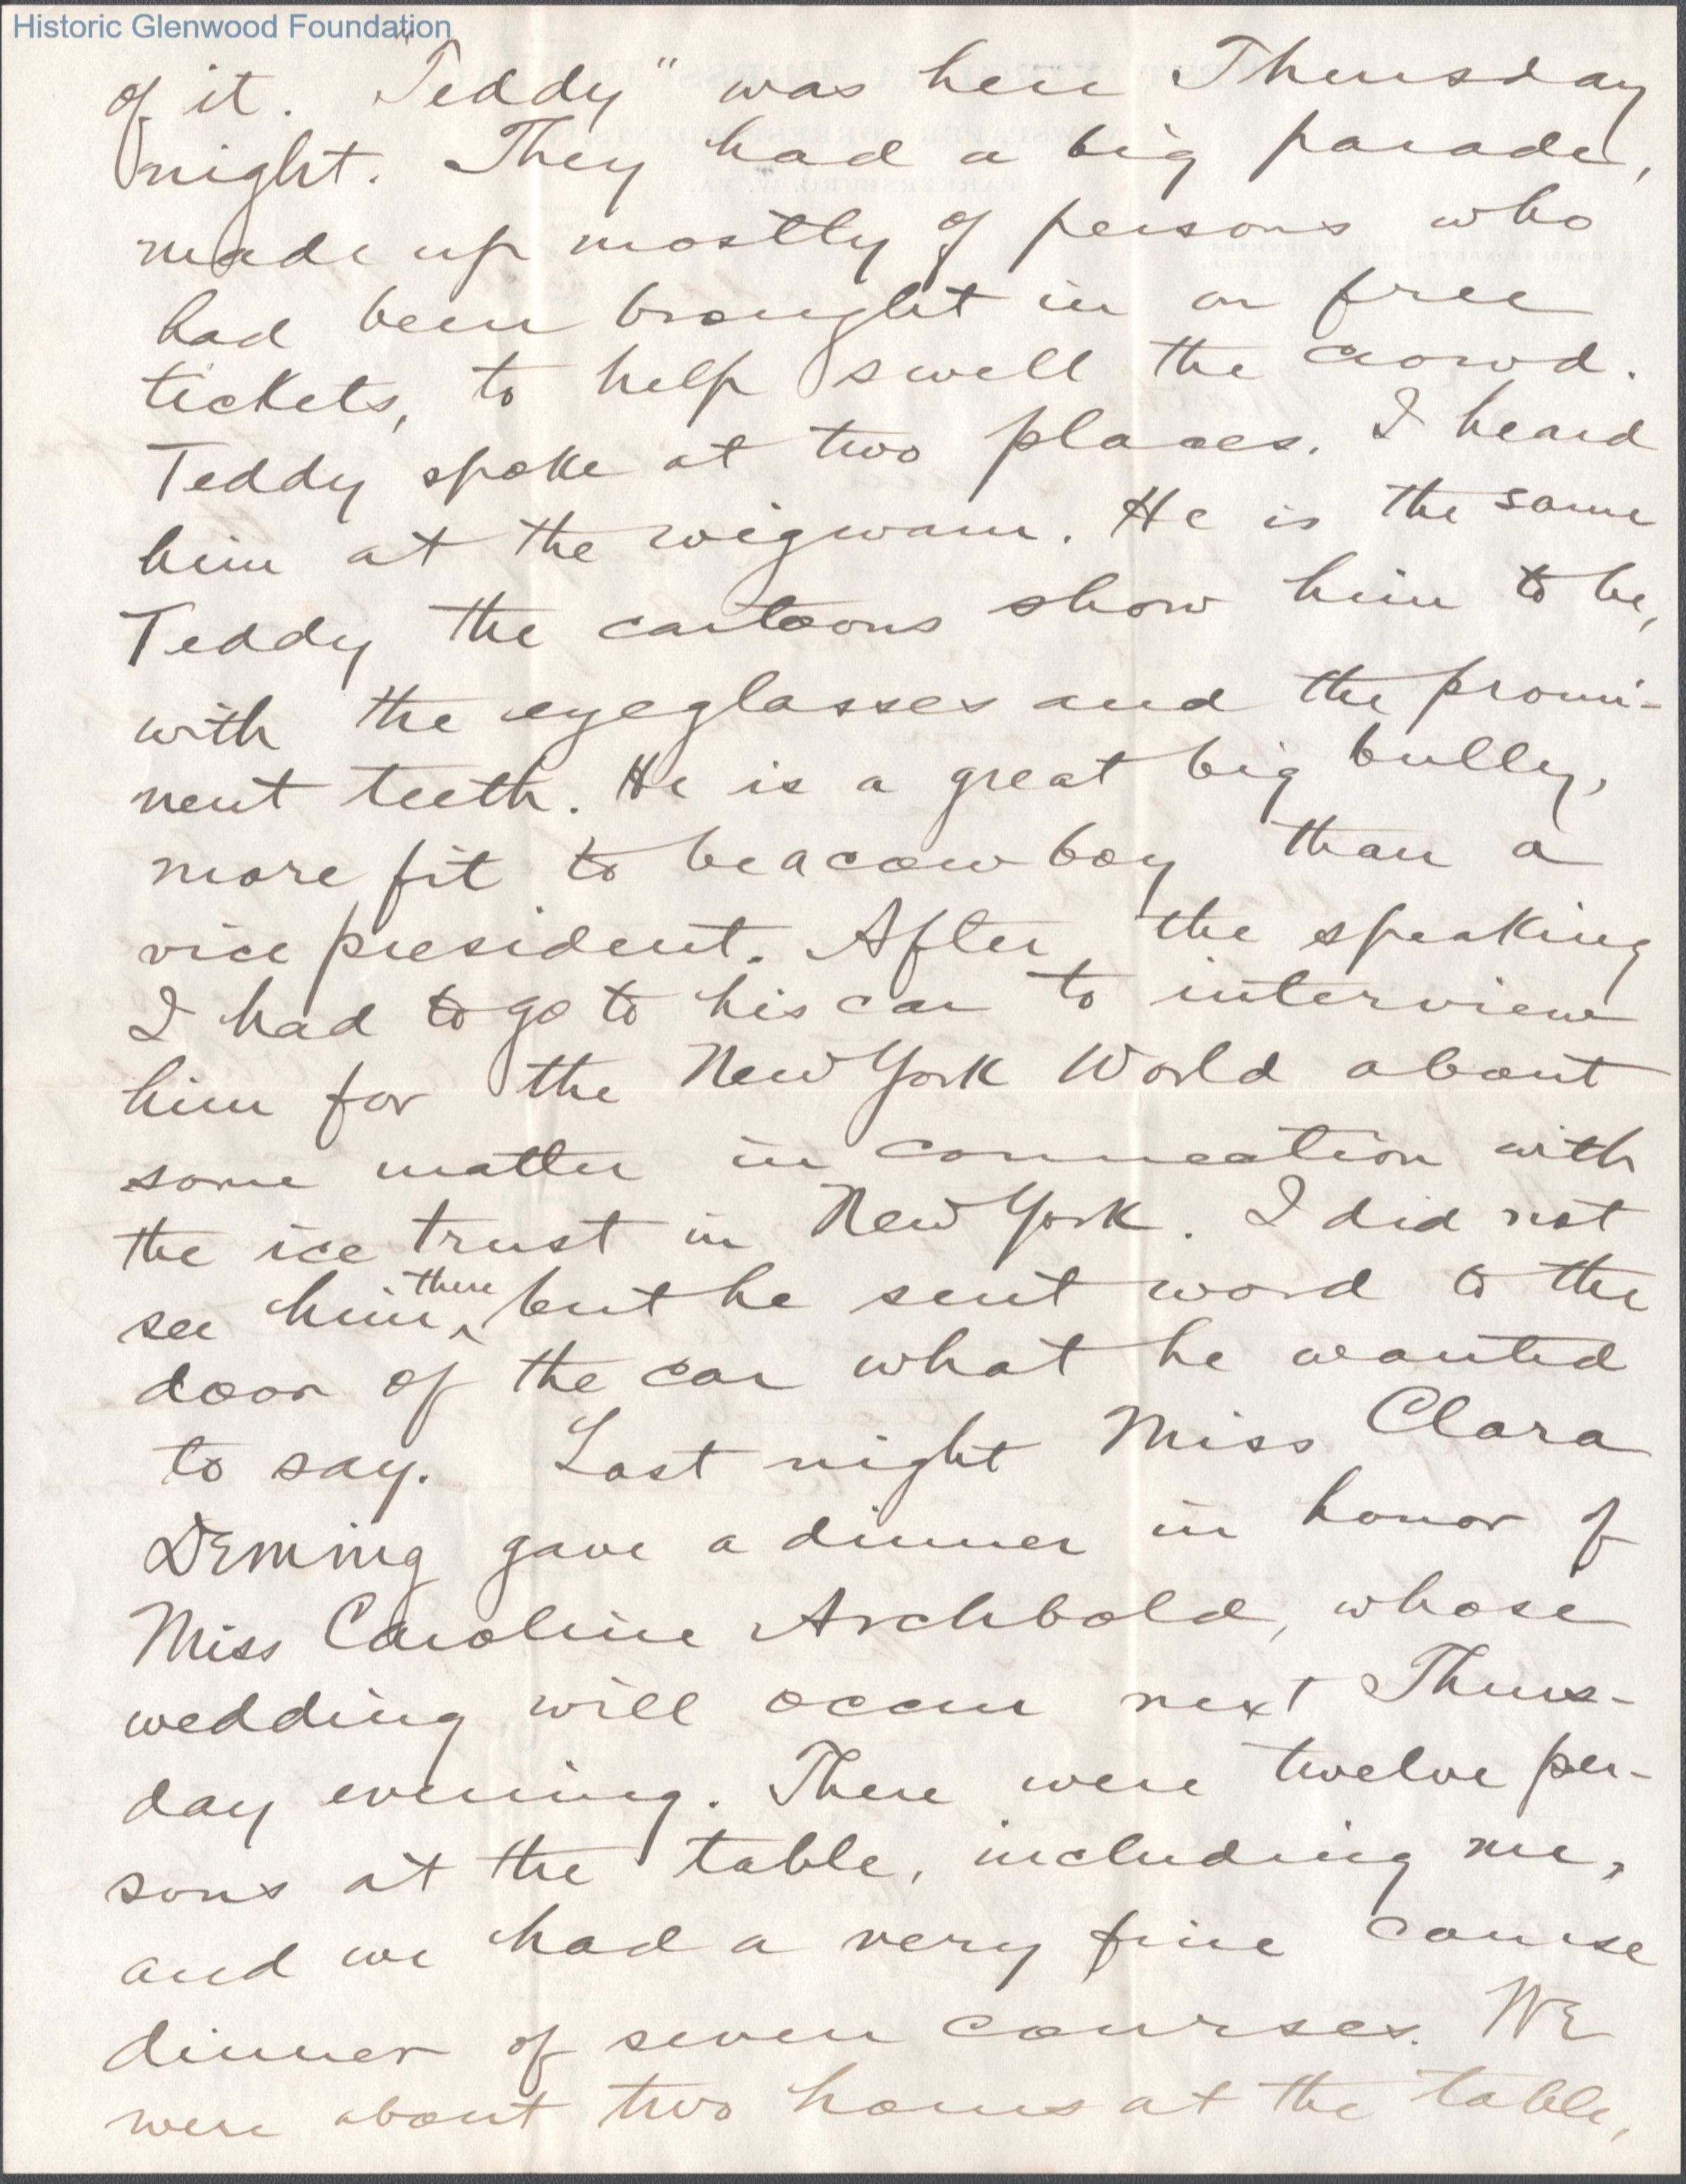 Historic Glenwood Foundation
of it. "Teddy" was here Thursday
night. They had a big parade,
made up mostly of persons who
had been brought in on free
tickets, to help swell the crowd.
Teddy spoke at two places. I heard
him at the wigwam. He is the same
Teddy the cartoons show him to be,
with the eyeglasses and the promi-
nent teeth. He is a great big bully,
more fit to be a cowboy than a
vice president. After the speaking
I had to go to his car to interview
him for the New York World about
some matter in connection with
the ice trust in New York. I did not
see him there, but he sent word to the
door of the car what he wanted
to say. Last night Miss Clara
Deming gave a dinner in honor of
Miss Caroline Archbold, whose
wedding will occur next Thurs-
day evening. There were twelve per-
sons at the table, including me,
and we had a very fine course
dinner of seven courses. We
were about two hours at the table,